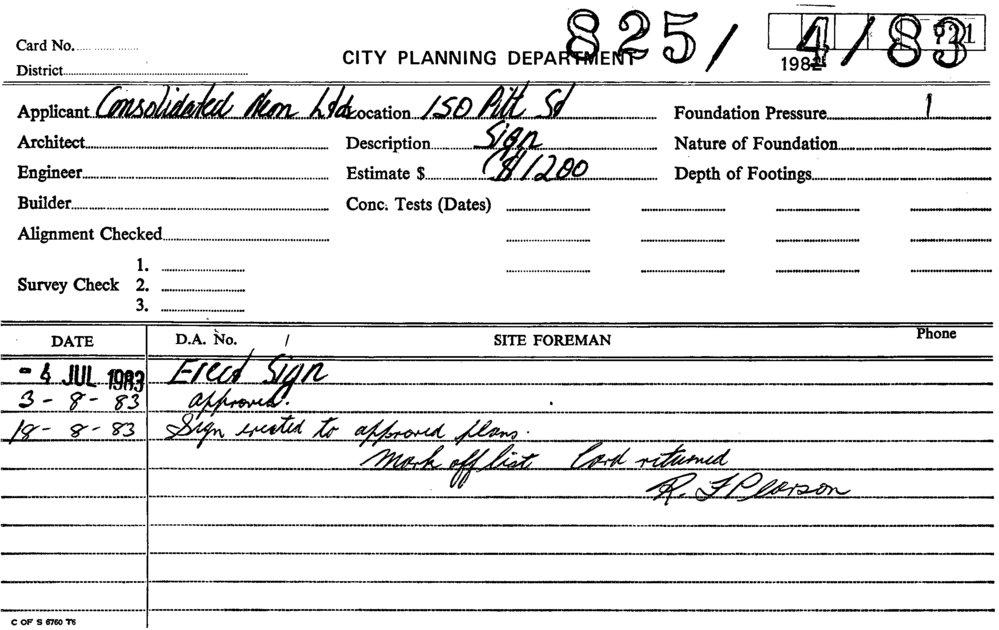 825/4/83
Card No.
CITY PLANNING DEPARTMENT 198
District
Applicant Consolidated Neon Ltd Location 150 Pitt St Foundation Pressure
Architect Description Sign Nature of Foundation
Engineer Estimate $ $1200 Depth of Footings
Builder Conc. Tests (Dates)
Alignment Checked
1.
Survey Check 2.
3.
DATE D.A. No. / SITE FOREMAN Phone
- 4 JUL 1983 Erect Sign
3 - 8 - 83 approved.
18 - 8 - 83 Sign erected to approved plans.
Mark off list Card returned
R. F Pearson
C OF S 6760 T6